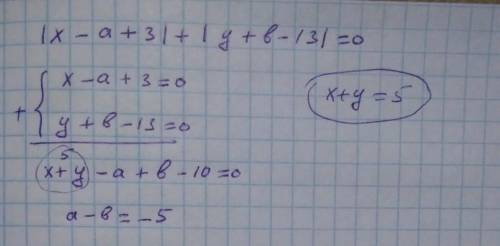 |x - a + 3| + | y + в - 13| = 0
+ { x - a + 3 = 0
y + в - 13 = 0
x + y = 5
5
x + y - a + в - 10 = 0
a - в = - 5